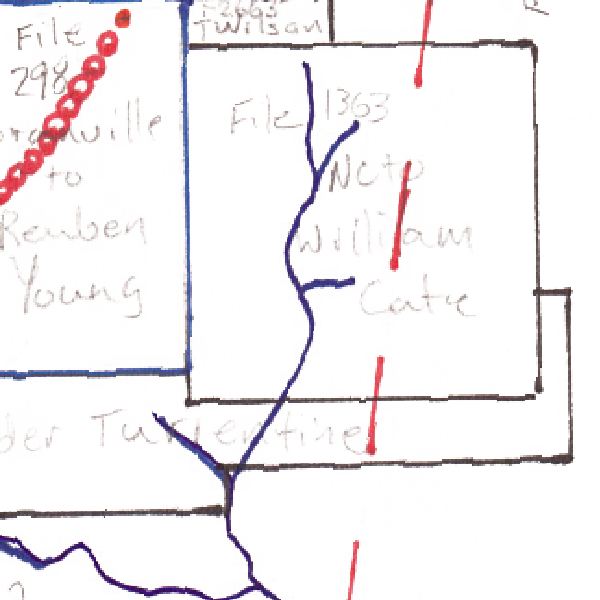 File
298
to
Reuben
Young
F2663
TWilson
File 1363
Ncto
William
Cate
der Turrentine
?